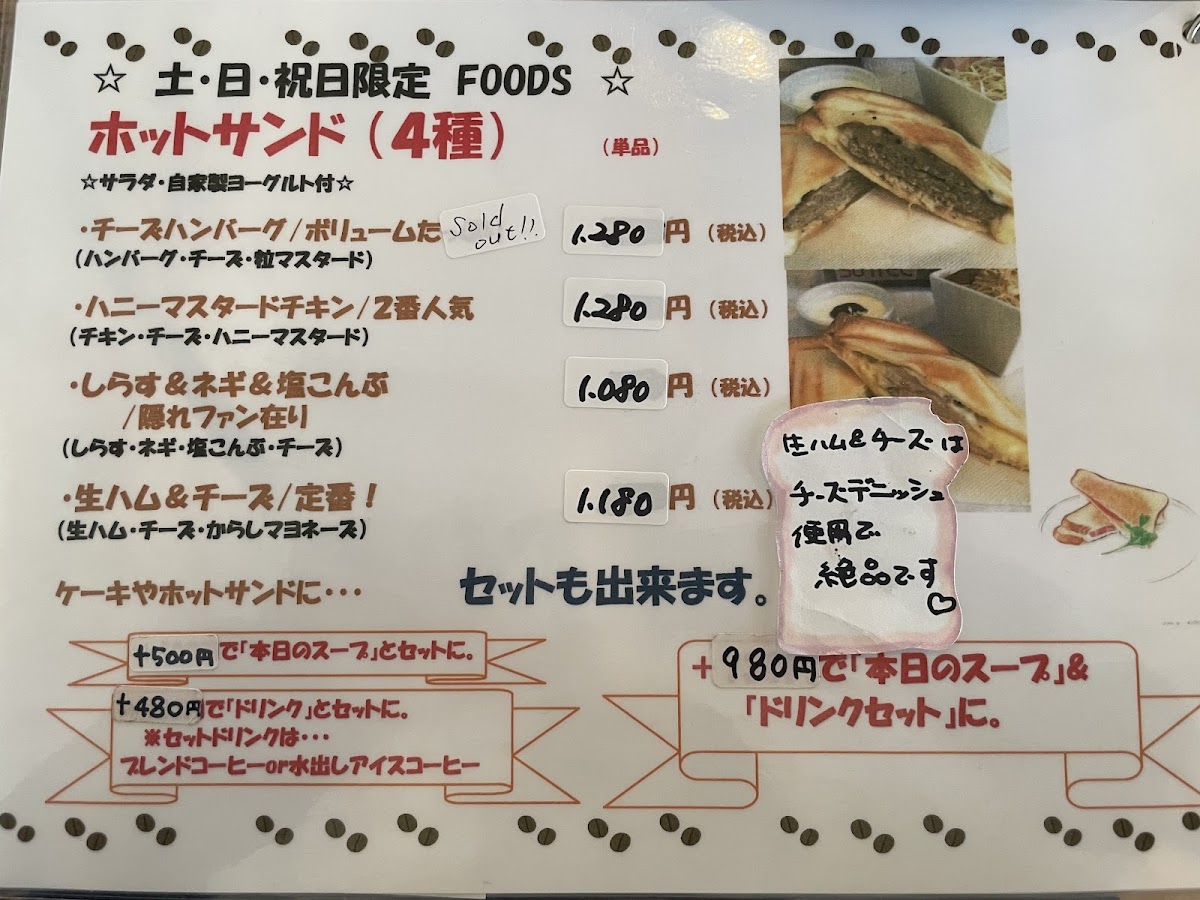 ☆ 土・日・祝日限定 FOODS ☆
ホットサンド(4種) (単品)
☆サラダ・自家製ヨーグルト付☆
・チーズハンバーグ/ボリュームた Sold out!! 1.280円 (税込)
(ハンバーグ・チーズ・粒マスタード)
・ハニーマスタードチキン/2番人気 1.280円 (税込)
(チキン・チーズ・ハニーマスタード)
・しらす&ネギ&塩こんぶ 1.080円 (税込)
/隠れファン在り
(しらす・ネギ・塩こんぶ・チーズ)
・生ハム&チーズ/定番! 1.180円 (税込)
(生ハム・チーズ・からしマヨネーズ)
生ハム&チーズは
チーズデニッシュ
使用で
絶品です♡
ケーキやホットサンドに・・・ セットも出来ます。
+500円で「本日のスープ」とセットに。
+480円で「ドリンク」とセットに。
※セットドリンクは・・・
ブレンドコーヒーor水出しアイスコーヒー
+980円で「本日のスープ」&
「ドリンクセット」に。